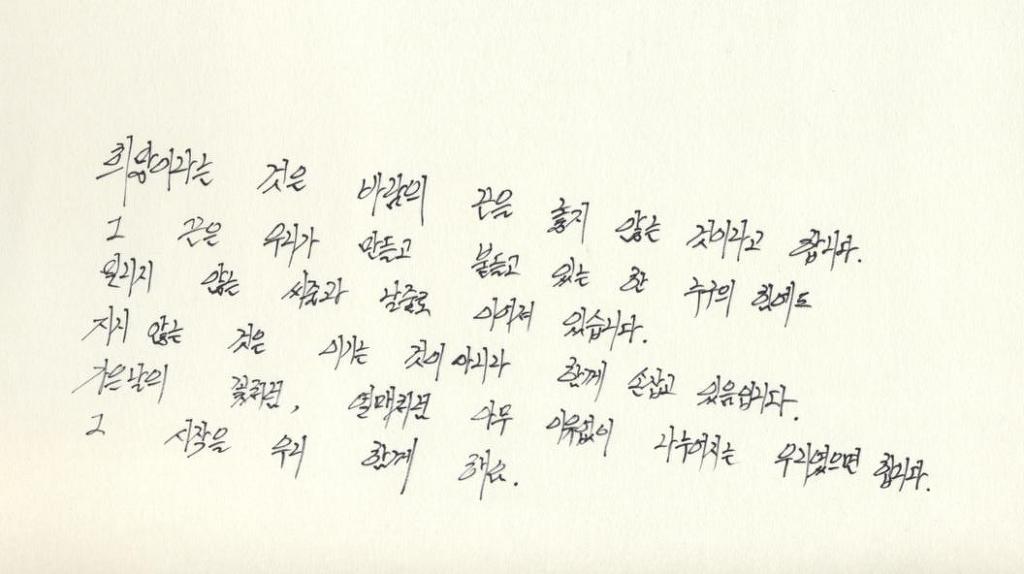 희망이라는 것은 바람의 끈을 놓지 않는 것이라고 합니다.
그 끈은 우리가 만들고 붙들고 있는 한 누구의 힘에도
밀리지 않는 씨줄과 날줄로 이어져 있습니다.
지지 않는 것은 이기는 것이 아니라 함께 손잡고 있음입니다.
가을날의 꽃처럼, 열매처럼 아무 이유없이 나누어지는 우리였으면 합니다.
그 시작을 우리 함께 해요.